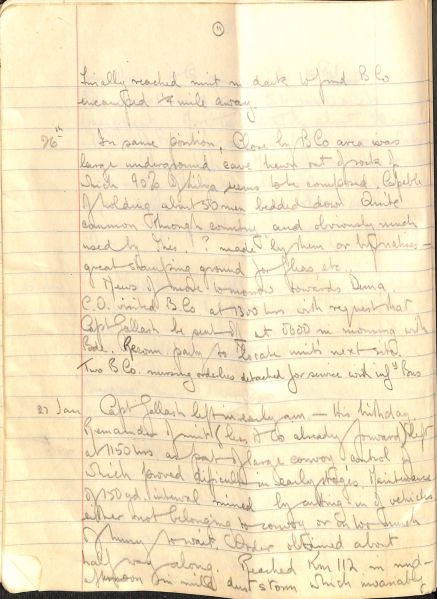 11
Finally reached unit in dark to find B Co
encamped 1/4 mile away.
26th In same position, Close by B Co area was
large underground cave hewn out of rock of
which 90% of Libya seems to be composed. Capable
of holding about 50 men bedded down. Quite
common through country and obviously much
used by Ities. ? made by them or by natives –
great stamping ground for fleas, etc.
News of move tomorrow towards Derna.
C.O. visited B Co at 1800 hrs with request that
Capt Gallash be sent at 0600 in morning with
Bde. Reconn. party to locate unit's next site.
Two B Co. nursing orderlies detached for service with inf. Bns
27 Jan Capt Gallash left in early am – His birthday.
Remainder of unit (less A Co already forward) left
at 1150 hrs as part of large convoy control of
which proved difficult in early stages. Maintenance
of 150 yd. interval ruined by cutting in of vehicles
either not belonging to convoy or in too much
of hurry to wait. Order obtained about
half way along. Reached Km 112 in mid-
afternoon in mild dust storm which invariably